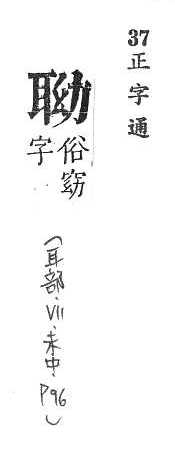 37正字通
聈
俗窈
字
(耳部·VII·未中·P96)